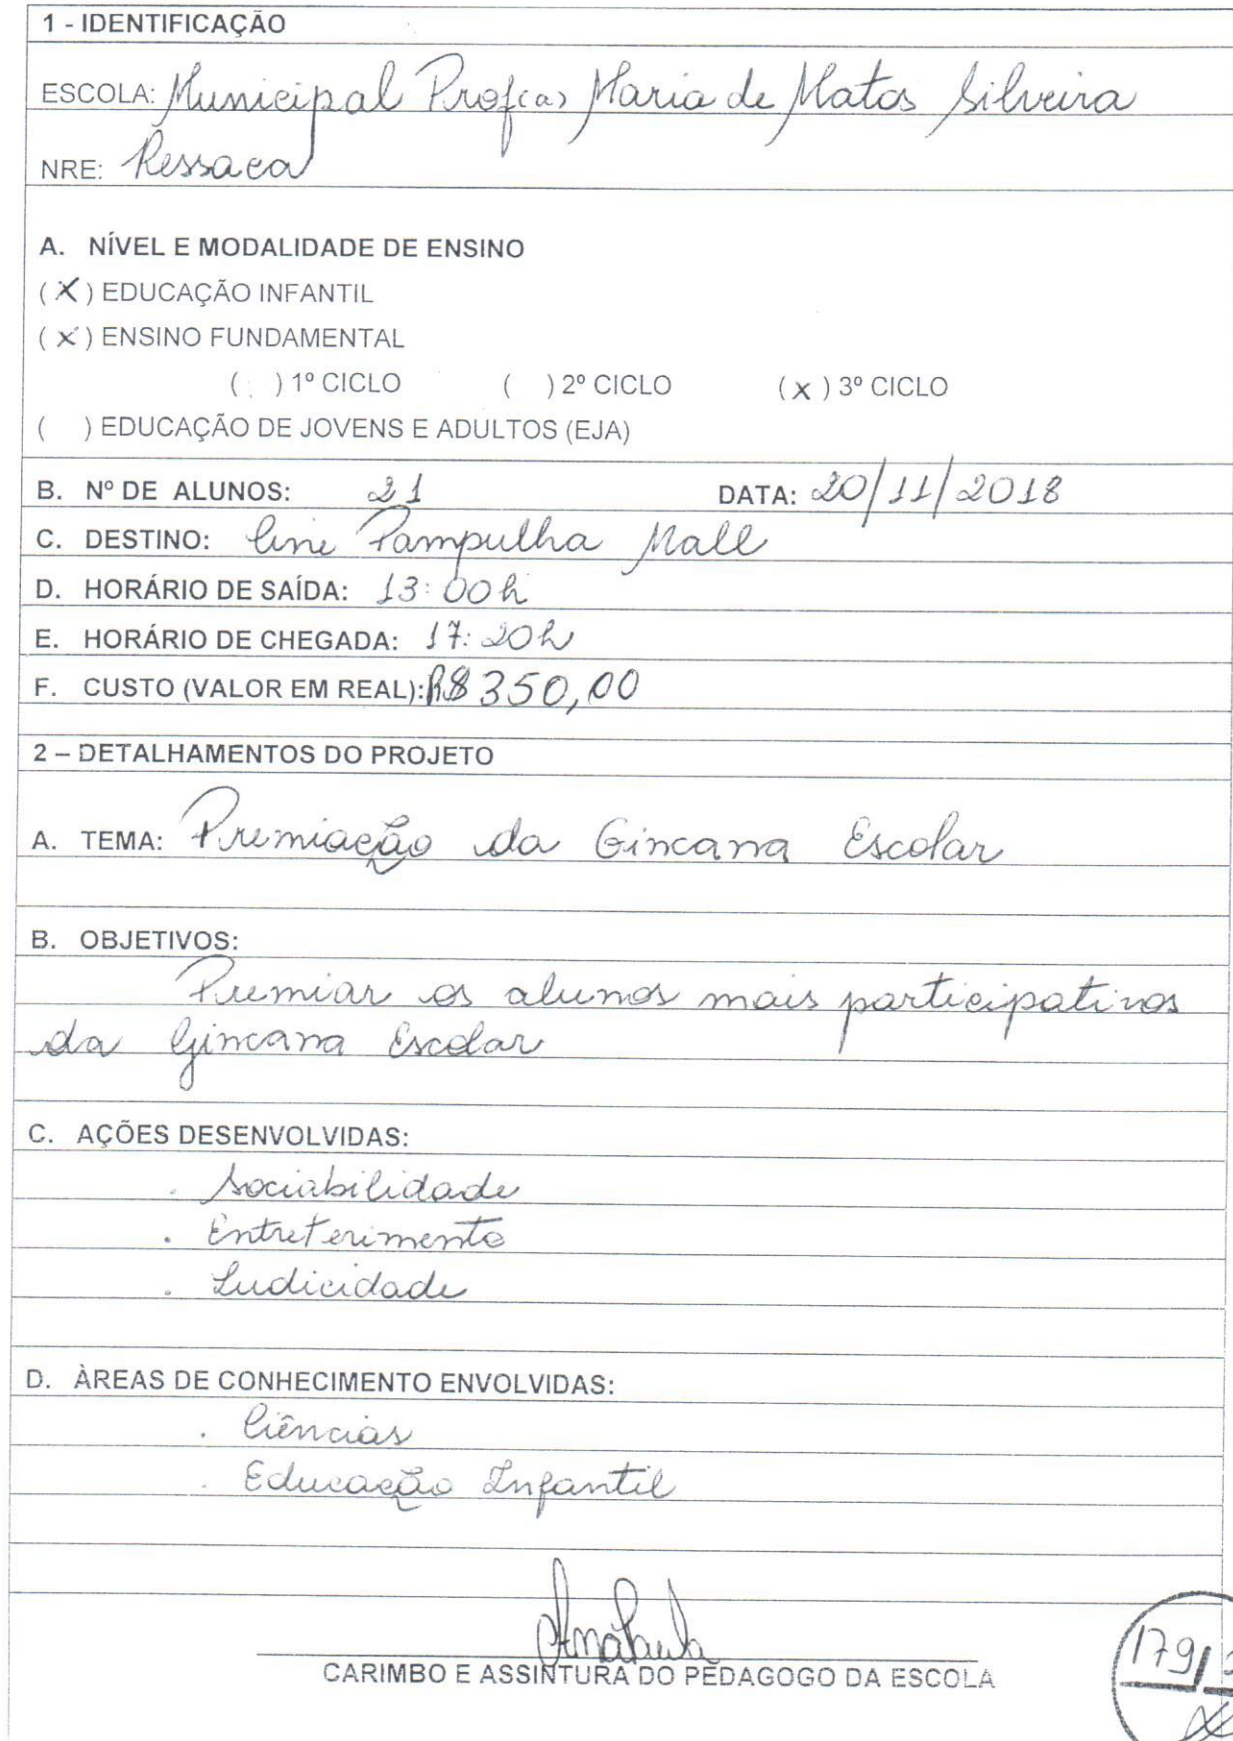 1 - IDENTIFICAÇÃO
ESCOLA: Municipal Prof(a) Maria de Matos Silveira
NRE: Ressaca
A. NÍVEL E MODALIDADE DE ENSINO
(X) EDUCAÇÃO INFANTIL
(x) ENSINO FUNDAMENTAL
( ) 1º CICLO ( ) 2º CICLO (x) 3º CICLO
( ) EDUCAÇÃO DE JOVENS E ADULTOS (EJA)
B. Nº DE ALUNOS: 21 DATA: 20/11/2018
C. DESTINO: Cine Pampulha Mall
D. HORÁRIO DE SAÍDA: 13:00h
E. HORÁRIO DE CHEGADA: 17:20h
F. CUSTO (VALOR EM REAL): R$ 350,00
2 – DETALHAMENTOS DO PROJETO
A. TEMA: Premiação da Gincana Escolar
B. OBJETIVOS:
Premiar os alunos mais participativos
da Gincana Escolar
C. AÇÕES DESENVOLVIDAS:
. Sociabilidade
. Entreterimento
. Ludicidade
D. ÀREAS DE CONHECIMENTO ENVOLVIDAS:
. Ciências
. Educação Infantil
Ana Paula
CARIMBO E ASSINTURA DO PEDAGOGO DA ESCOLA
179